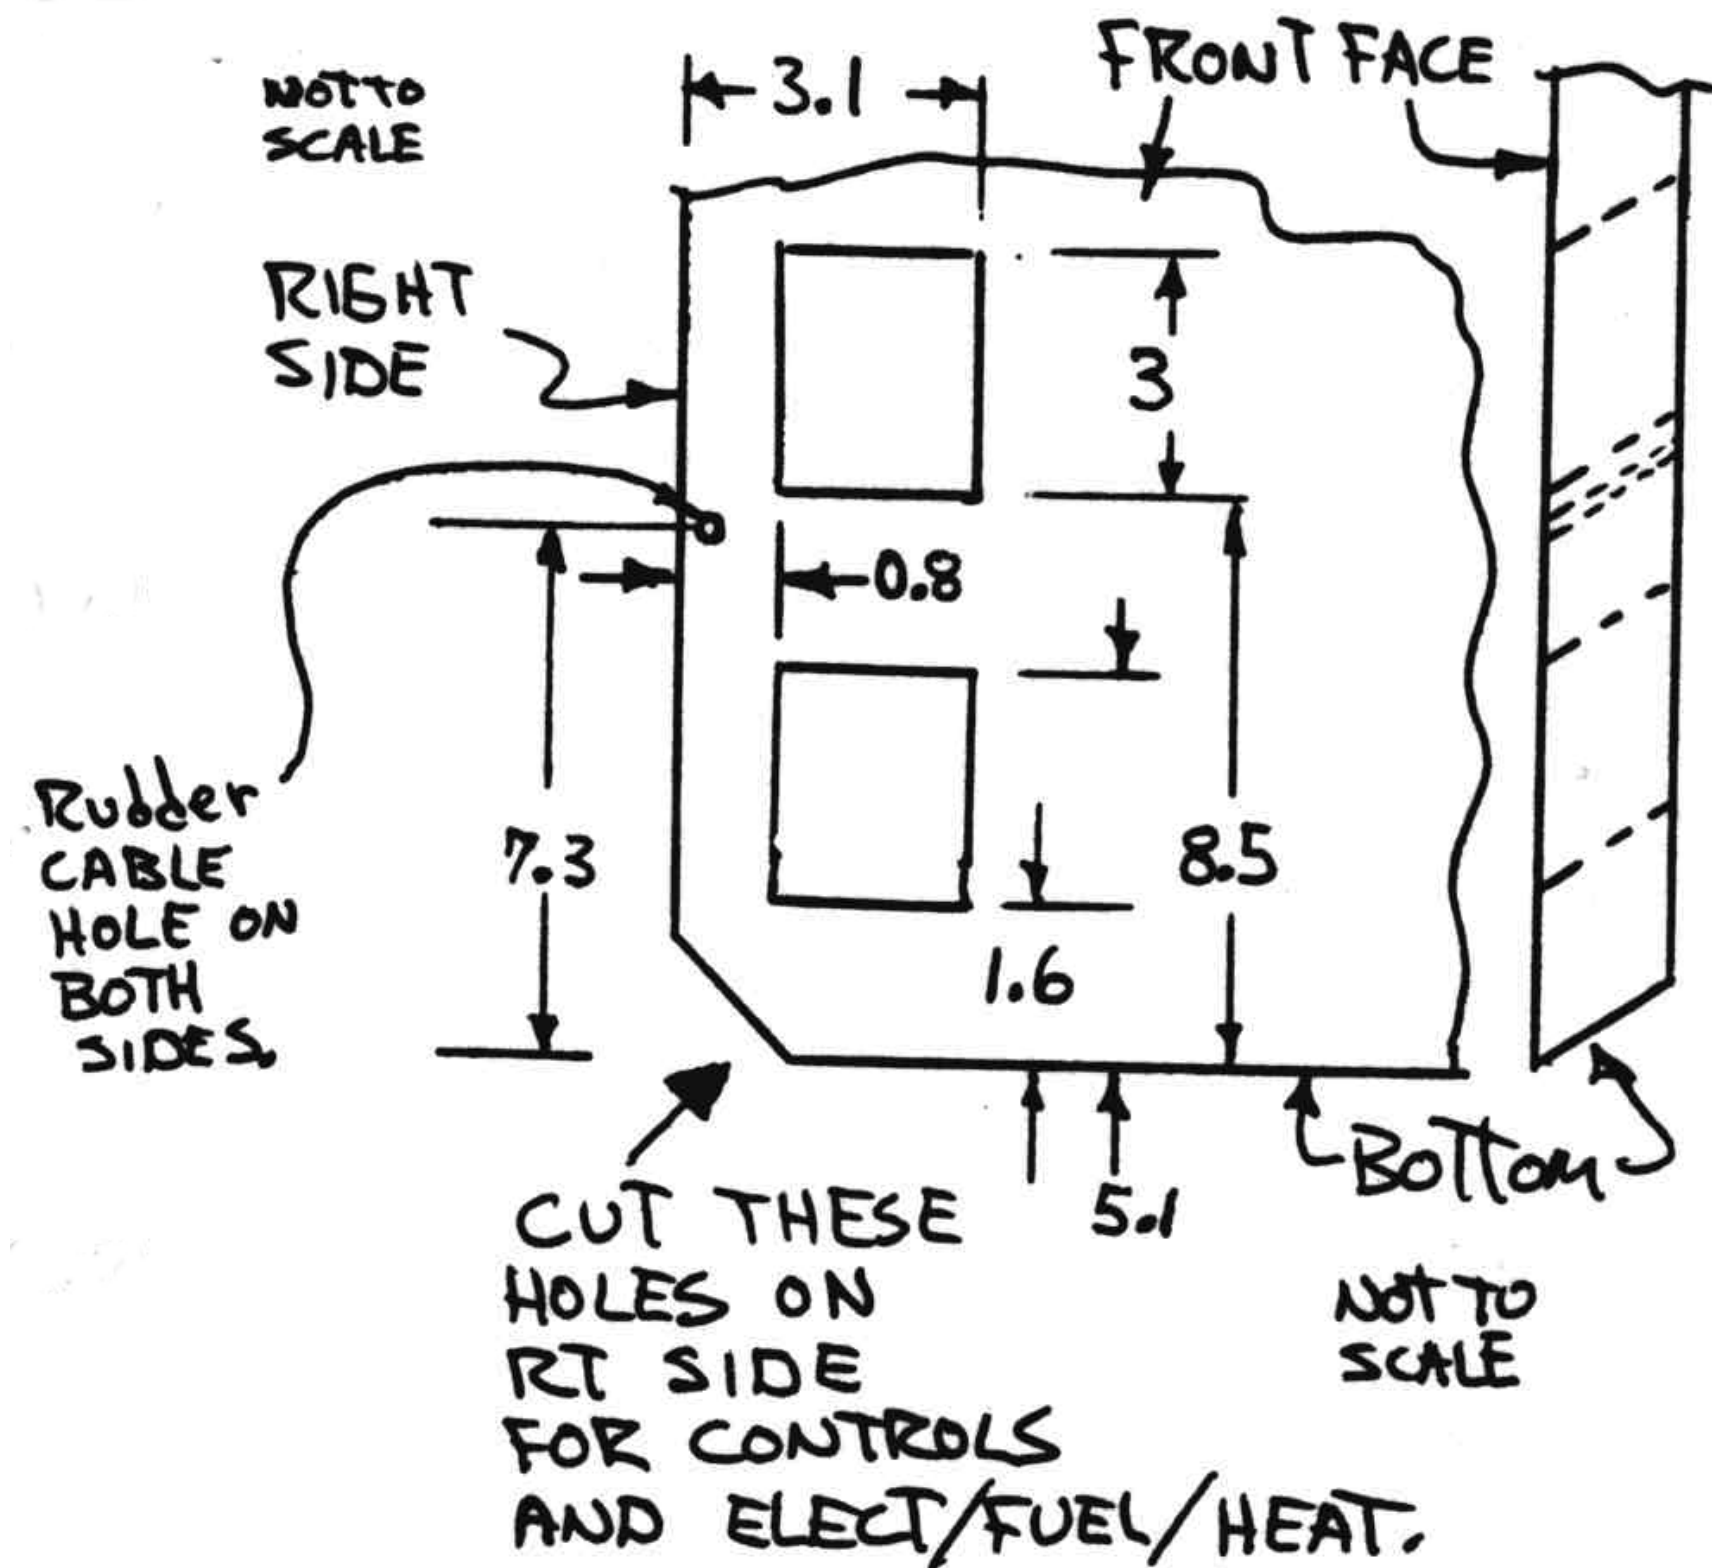 NOT TO
SCALE
3.1
FRONT FACE
RIGHT
SIDE
3
0.8
Rudder
CABLE
HOLE ON
BOTH
SIDES.
7.3
8.5
1.6
5.1
Bottom
CUT THESE
HOLES ON
RT SIDE
FOR CONTROLS
AND ELECT/FUEL/HEAT.
NOT TO
SCALE